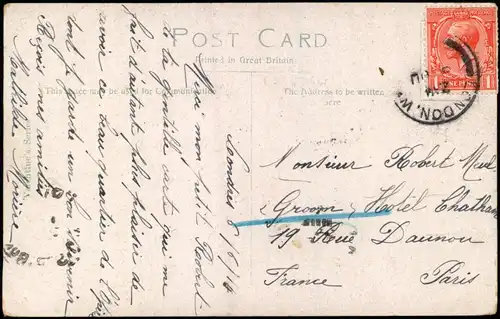 POST CARD
Printed in Great Britain
This space may be used for Communication
The Address to be written
here
LONDON. W.
ONE PENNY
Londres 5/6/14
Merci mon petit Robert
de ta gentille carte qui me
fait d'autant plus plaisir de
savoir ce beau quartier de l'Opéra
dont je garde un bon souvenir
Reçois mes amitiés
Mathilde
Monsieur Robert
Groom Hôtel Chatham
19 Rue Daunou
Paris
France